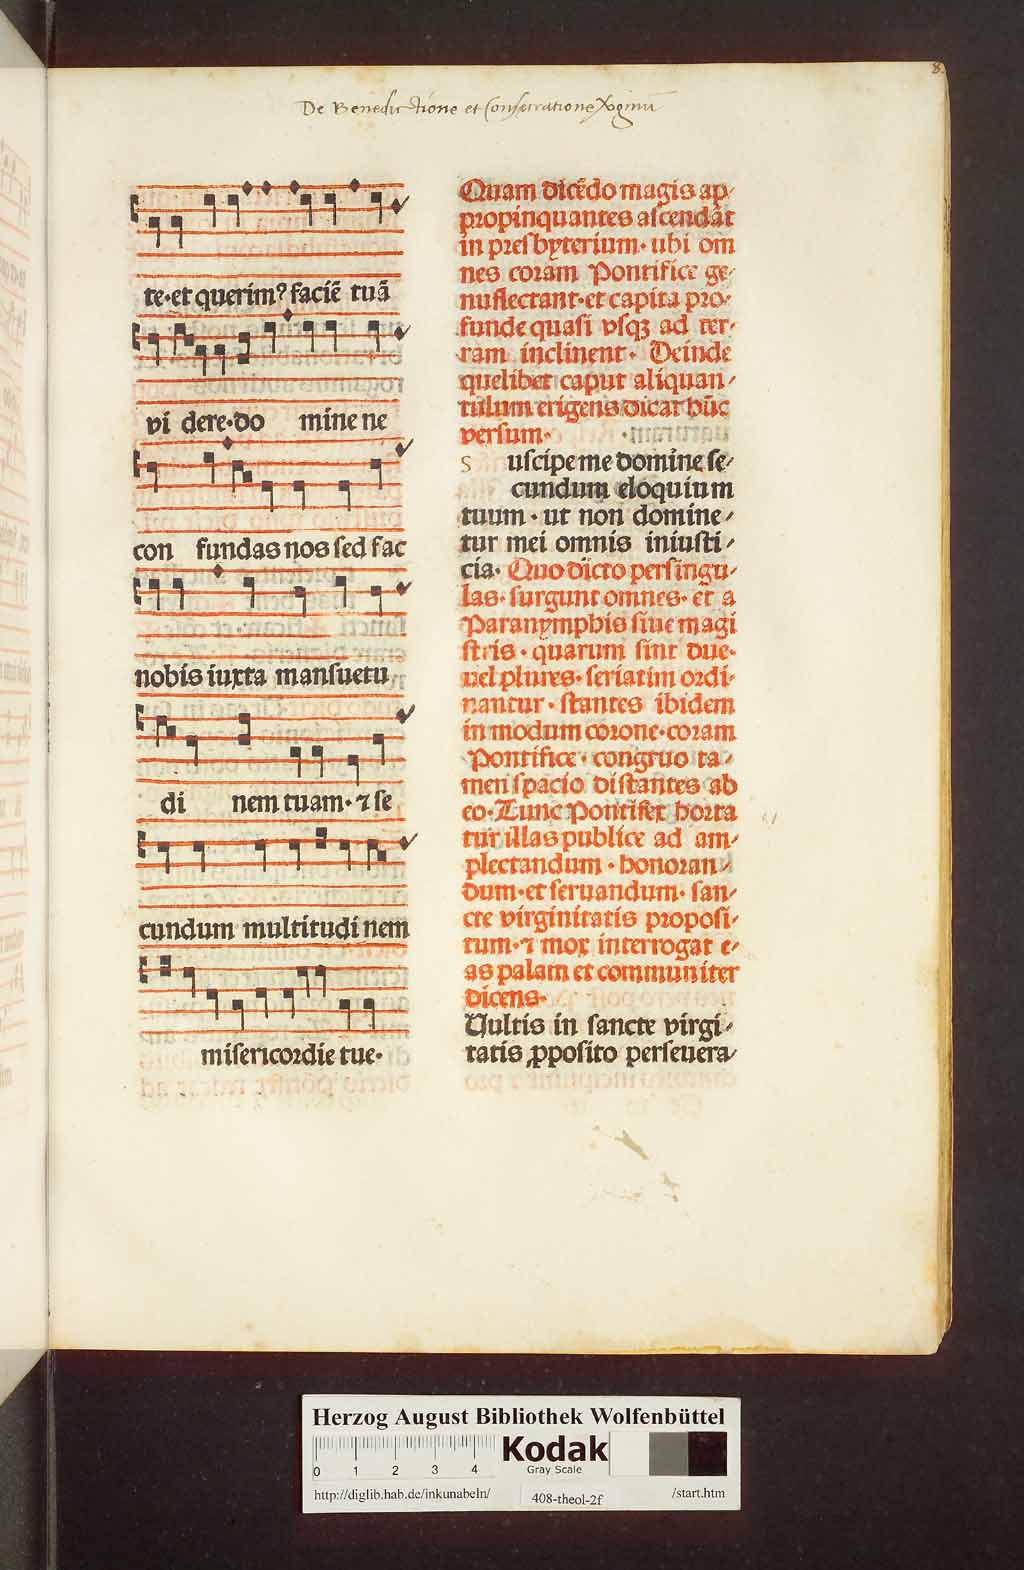 De Benedictione et Consecratione Virginū
8.
te·et querim⁹ faciē tuā
vi dere·do mine ne
con fundas nos sed fac
nobis iuxta mansuetu
di nem tuam·⁊ se
cundum multitudi nem
misericordie tue·
Quam dicēdo magis ap⸗
propinquantes ascendāt
in presbyterium· ubi om
nes coram Pontifice ge⸗
nuflectant·et capita pro⸗
funde quasi vsqꝫ ad ter⸗
ram inclinent· Deinde
quelibet caput aliquan⸗
tulum erigens dicat hūc
versum·
s uscipe me domine se⸗
cundum eloquium
tuum · ut non domine⸗
tur mei omnis iniusti⸗
cia· Quo dicto per singu⸗
las· surgunt omnes· et a
Paranymphis siue magi
stris · quarum sint due·
uel plures· seriatim ordi⸗
nantur · stantes ibidem
in modum corone·coram
Pontifice · congruo ta⸗
men spacio distantes ab
eo·Tunc Pontifex horta
tur illas publice ad am⸗
plectandum · honoran⸗
dum·et seruandum· san⸗
cte virginitatis proposi⸗
tum·⁊ mox interrogat e⸗
as palam et communiter
dicens·
Uultis in sancte virgi⸗
tatis ꝓposito perseuera⸗
Herzog August Bibliothek Wolfenbüttel
Kodak
Gray Scale
0 1 2 3 4
http://diglib.hab.de/inkunabeln/ 408-theol-2f /start.htm